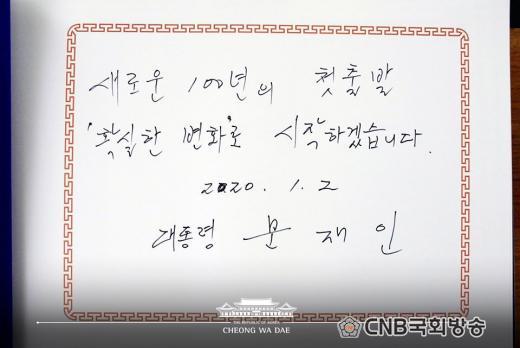 새로운 100년의 첫출발
'확실한 변화'로 시작하겠습니다.
2020. 1. 2
대통령 문 재 인
THE REPUBLIC OF KOREA
CHEONG WA DAE
CNB국회방송